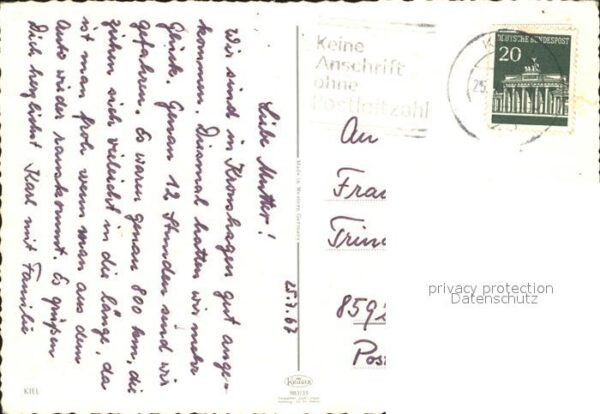 Keine
Anschrift
ohne
Postleitzahl
DEUTSCHE BUNDESPOST
20
25.7.67
Liebe Mutter!
Wir sind in Kronshagen gut ange-
kommen. Diesmal hatten wir mehr
Glück. Genau 12 Stunden sind wir
gefahren. Es waren genau 800 km, die
ziehen sich vielleicht in die Länge, da
ist man froh wenn man aus dem
Auto wieder rauskommt. Es grüßen
Dich herzlichst Karl mit Familie
An
Frau
859
Pos
Made in Western Germany
KIEL
Krüger
privacy protection
Datenschutz